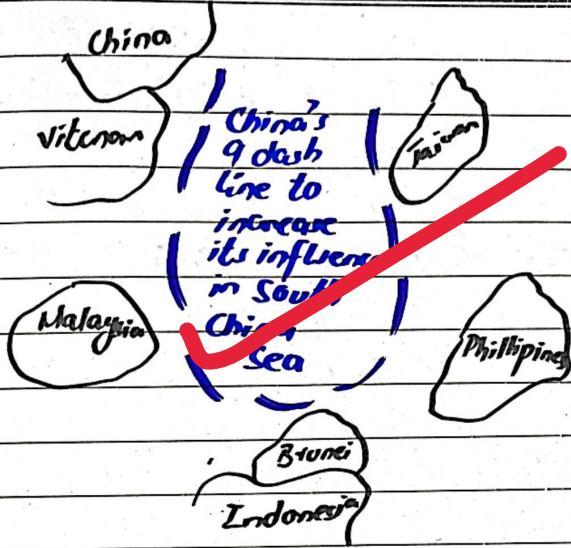 China
Vitenam
Taiwan
China's
9 dash
line to
increase
its influence
in South
China
Sea
Malaysia
Phillipines
Brunei
Indonesia